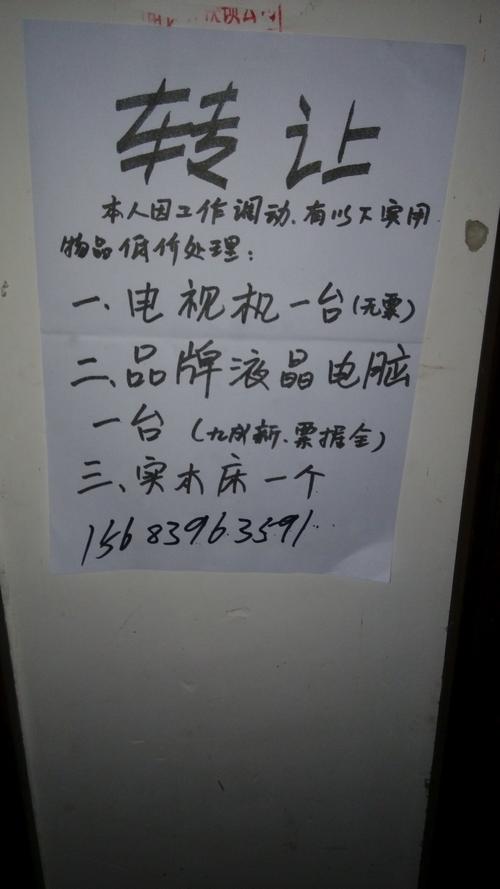 转让
本人因工作调动.有以下实用
物品低价处理：
一、电视机一台(无票)
二、品牌液晶电脑
一台（九成新.票据全）
三、实木床一个
15683963591